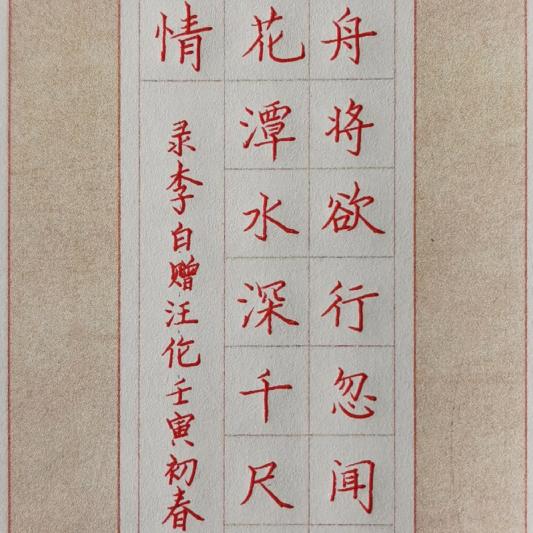 舟将欲行忽闻
花潭水深千尺
情
录李白赠汪伦壬寅初春